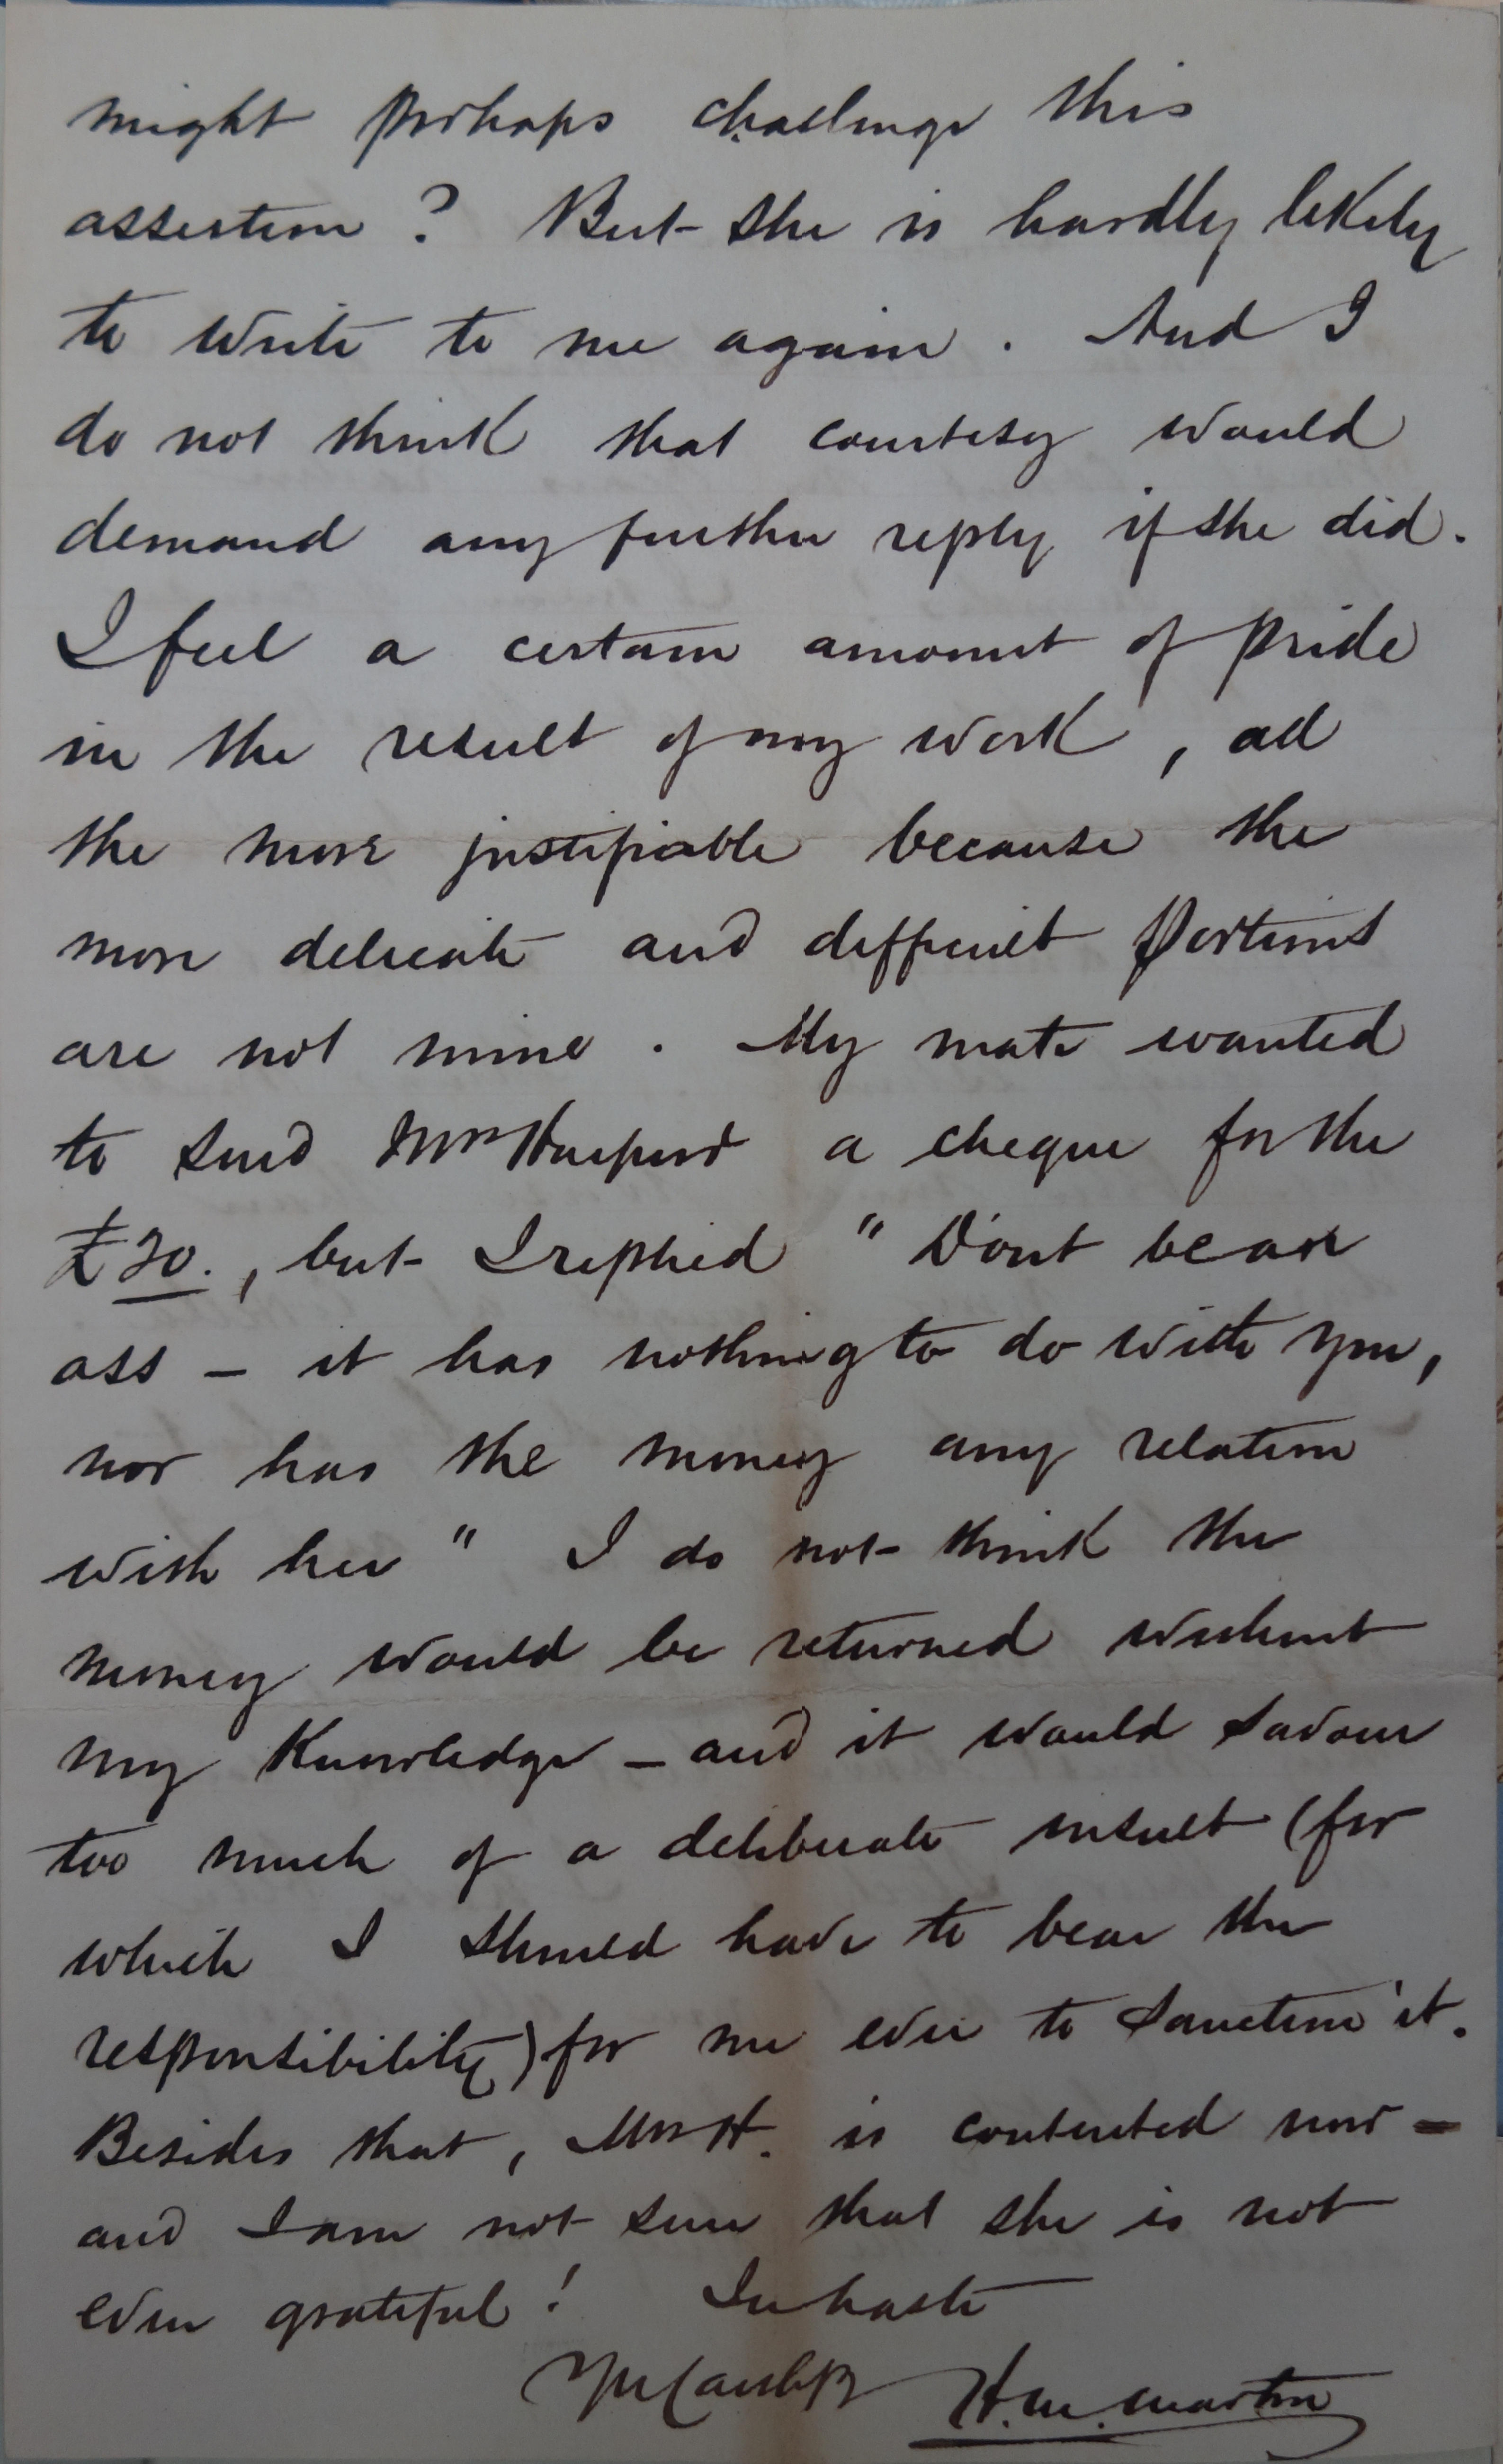 might perhaps challenge this
assertion ? But she is hardly likely
to write to me again . And I
do not think that courtesy would
demand any further reply if she did .
I feel a certain amount of pride
in the result of my work , all
the more justifiable because the
more delicate and difficult portions
are not mine . My mate wanted
to send Mrs a cheque for the
£20. , but I replied " Dont be an
ass – it has nothing to do with you ,
nor has the money any relation
with her " I do not think the
money would be returned without
my knowledge – and it would savour
too much of a deliberate insult (for
which I should have to bear the
responsibility) for me ever to sanction it .
Besides that , Mrs H. is contented now –
and I am not sure that she is not
even grateful ! In haste
H.M. Martin